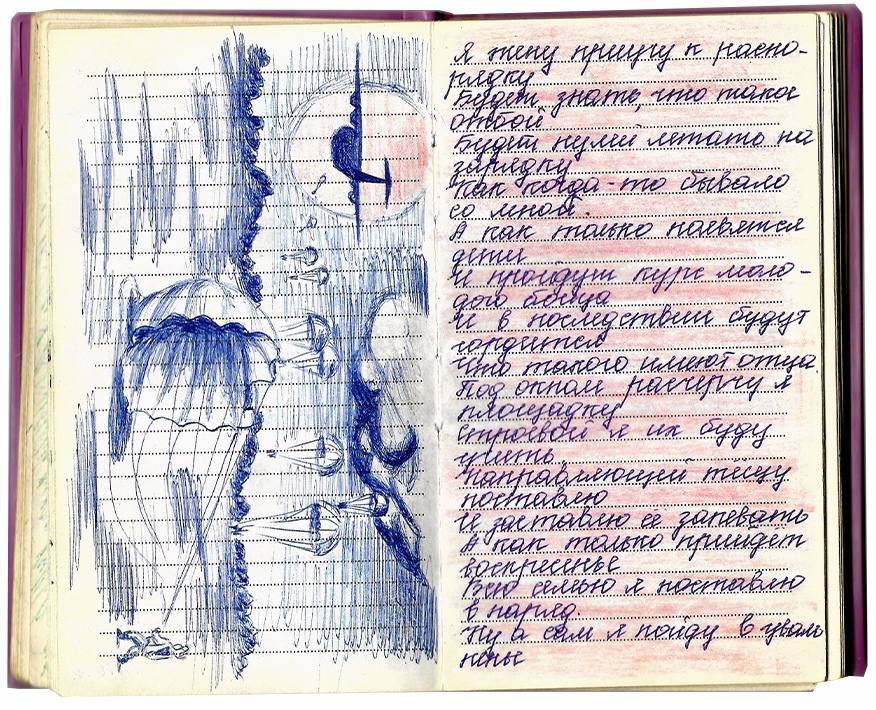 Я жену приучу к распо-
рядку
Будет знать, что такое
отбой
Будет пулей летать на
зарядку
Как когда-то бывало
со мной.
А как только появятся
дети
И пройдут курс моло-
дого бойца
И в последствии будут
гордится
Что такого имеют отца.
Под окном расчерчу я
площадку
Строевой я их буду
учить
Направляющей тёщу
поставлю
И заставлю её запевать
А как только прийдет
воскресенье
Всю семью я поставлю
в наряд.
Ну а сам я пойду в уволь
ненье